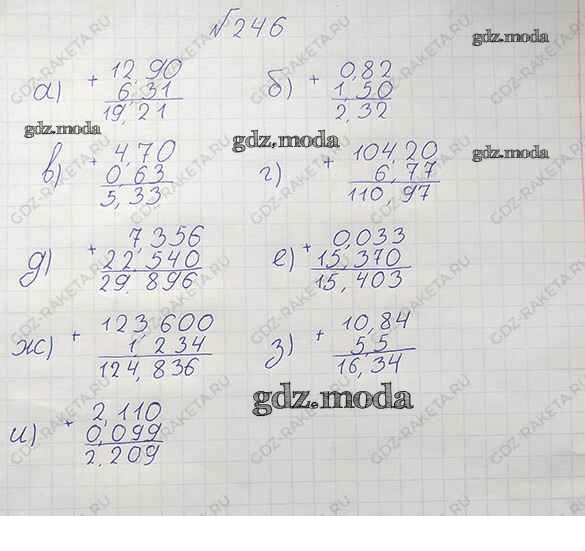 №246
gdz.moda
а) + 12,90
6,31
19,21
б) + 0,82
1,50
2,32
gdz.moda
gdz.moda
gdz.moda
в) + 4,70
0,63
5,33
г) + 104,20
6,77
110,97
д) + 7,356
22,540
29,896
е) + 0,033
15,370
15,403
ж) + 123,600
1,234
124,836
з) + 10,84
5,5
16,34
gdz.moda
и) + 2,110
0,099
2,209
GDZ-RAKETA.RU